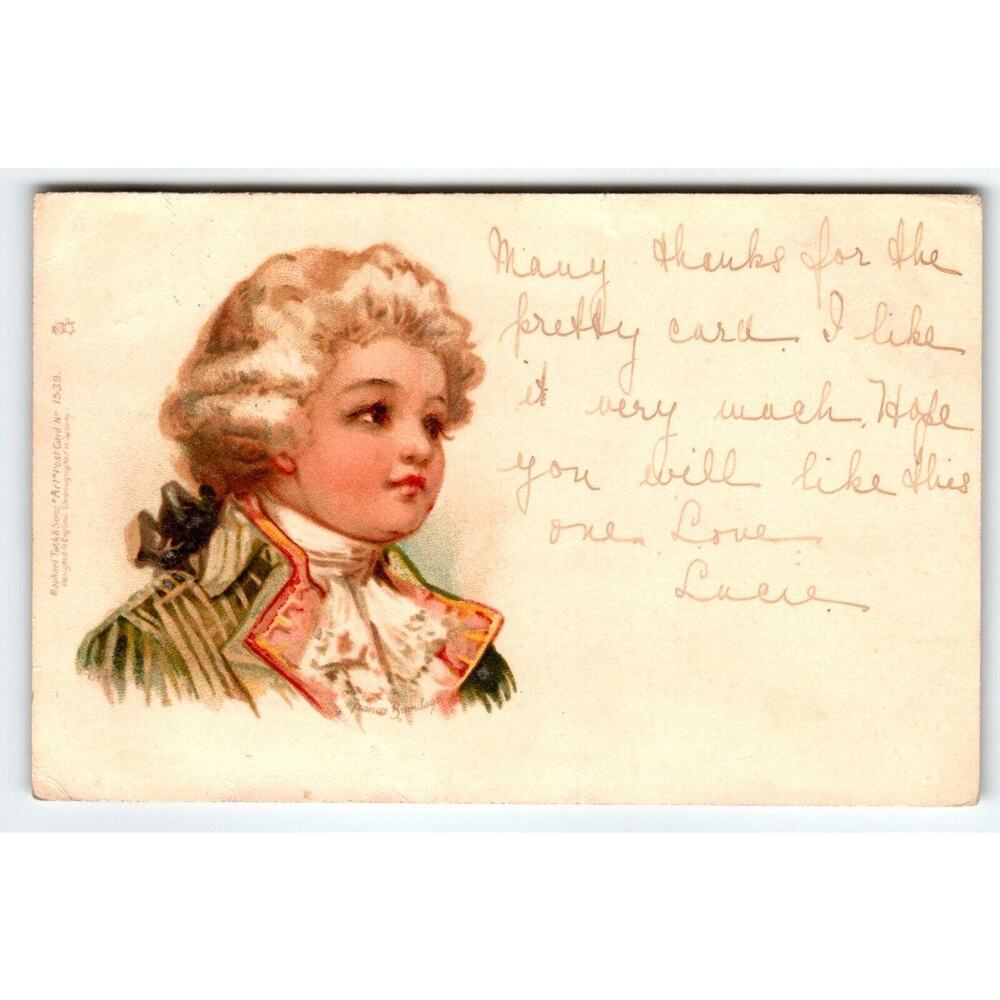 Many thanks for the
pretty card. I like
it very much. Hope
you will like this
one. Love
Lucie
Raphael Tuck & Sons' "Art" Post Card No. 1539.
Designed in England. Chromographed in Saxony
Frances Brundage